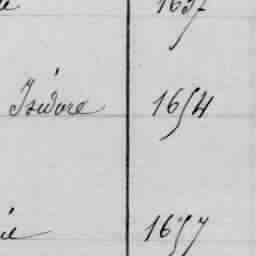 1657
Isidore 1654
1657